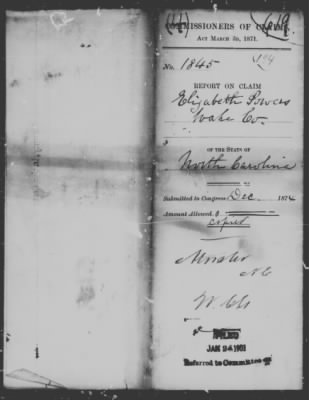 (44) COMMISSIONERS OF CLAIMS
ACT MARCH 3D, 1871.
No. 1845
REPORT ON CLAIM
Elizabeth Powers
Wake Co.
OF THE STATE OF
North Carolina
Submitted to Congress Dec. 1874
Amount Allowed, $
copied
N C
FILED
JAN 24 1901
Referred to Committee